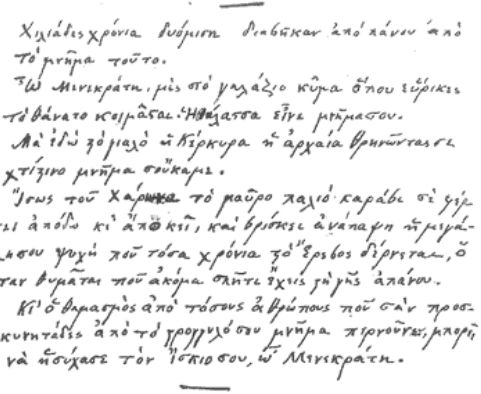 Χιλιάδες χρόνια δυόμιση διαβῆκαν ἀπό πάνου ἀπό
τό μνῆμα τοῦτο.
Ὦ Μενεκράτη, μὲς στό γαλάζιο κῦμα ὅπου εὕρικες
τό θάνατο κοιμᾶσαι. Ἡ θάλασσα εἶνε μνῆμα σου.
Μὰ ἐδώ στό γιαλό ἡ Κέρκυρα ἡ ἀρχαία θρηνῶντας σε
χτίζινο μνῆμα σοὔκαμε.
Ἴσως τοῦ Χάρωνα τό μαῦρο παλιό καράβι σὲ φέρ-
νει ἀπόδω κι' ἀπό κεῖ, καὶ βρίσκει ἀνάπαψη ἡ μεγά-
λη σου ψυχή ποῦ τόσα χρόνια στό Ἔρεβος δέρνεται, ὅ-
ταν θυμᾶται ποῦ ἀκόμα σπῆτι ἔχεις στῆ γῆς ἀπάνου.
Κι' ὁ θαμασμὸς ἀπό τόσους ἀθρώπους ποῦ σὰν προσ-
κυνητάδες ἀπό τό στρογγυλό σου μνῆμα περνοῦνε, μπορεῖ
νὰ ἡσύχασε τὸν ἴσκιο σου, ὦ Μενεκράτη.